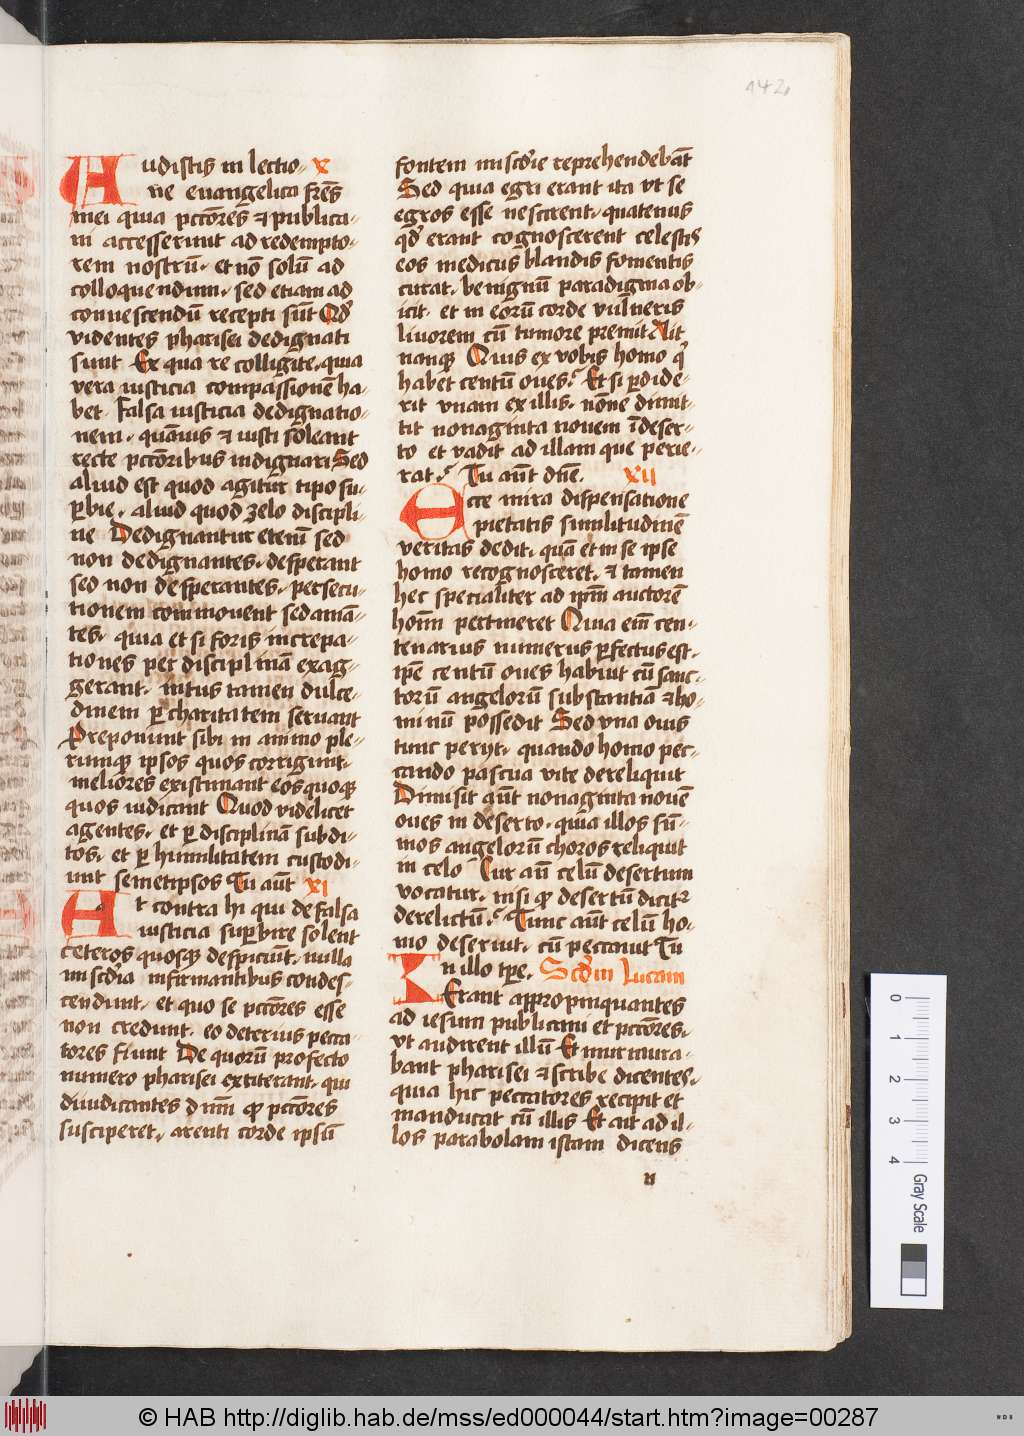 142
Audistis in lectio- X
ne euangelica fr̄es
mei quia pctōres ⁊ publica-
ni accesserunt ad redempto-
rem nostrū· et nō solū ad
colloquendum· sed etiam ad
conuescendū recepti sūt Qd̄
videntes pharisei dedignati
sunt Ex qua re colligite· quia
vera iusticia compassionē ha-
bet falsa iusticia dedignatio-
nem· quāuis ⁊ iusti soleant
recte pctōribus indignari Sed
aliud est quod agitur tipo su-
ꝑbie· aliud quod zelo discipli-
ne Dedignantur etenī sed
non dedignantes· desperant
sed non desperantes· persecu-
tionem commouent sed amā-
tes· quia et si foris increpa-
tiones per disciplinā exag-
gerant· intus tamen dulce-
dinem ꝑ charitatem seruant
Preponunt sibi in animo ple-
rumqꝫ ipsos quos corrigunt·
meliōres existimant eos quoqꝫ
quos iudicant Quod videlicet
agentes· et ꝑ disciplinā subdi-
tos· et ꝑ humilitatem custodi-
unt semetipsos Tu aūt XI
At contra hi qui de falsa
iusticia suꝑbire solent
ceteros quosqꝫ despiciūt· nulla
miscd̄ia infirmantibus condes-
cendunt· et quo se pctōres esse
non credunt· eo deterius pecca-
tores fiunt De quorū profecto
numero pharisei extiterant· qui
diiudicantes dn̄m qꝫ pctōres
susciperet· arenti corde ipsū
fontem miscd̄ie reprehendebāt
Sed quia egri erant ita vt se
egros esse nescirent· quatenus
qd̄ erant cognoscerent celestis
eos medicus blandis fomentis
curat· benignū paradigma ob-
icit· et in eorū corde vulneris
liuorem cū tumore premit Ait
nanqꝫ Quis ex vobis homo q̄
habet centū oues? Et si ꝑdide-
rit vnam ex illis· nōne dimit-
tit nonaginta nouem ī deser-
to et vadit ad illam que perie-
rat? Tu aūt dn̄e. XII
Ecce mira dispensatione
pietatis similitudinē
veritas dedit· quā et in se ipse
homo recognosceret· ⁊ tamen
hec specialiter ad ipm̄ auctorē
hoīm pertineret Quia eīm cen-
tenarius numerus ꝑfectus est·
ipē centū oues habuit cū sanc-
torū angelorū substantiā ⁊ ho-
minū possedit Sed vna ouis
tunc perijt· quando homo pec-
cando pascua vite dereliquit
Dimisit aūt nonaginta nouē
oues in deserto· quia illos sūm-
mos angelorū choros reliquit
in celo Cur aūt celū desertum
vocatur· nisi qꝫ desertū dicit͛
derelictū? Tunc aūt celū ho-
mo deseruit· cū peccauit Tu
In illo tp̄e. Scd̄m Lucam
Erant appropinquantes
ad iesum publicani et pctōres·
vt audirent illū Et murmura-
bant pharisei ⁊ scribe dicentes·
quia hic peccatores recipit et
manducat cū illis Et ait ad il-
los parabolam istam dicens
n
0 1 2 3 4 Gray Scale
© HAB http://diglib.hab.de/mss/ed000044/start.htm?image=00287